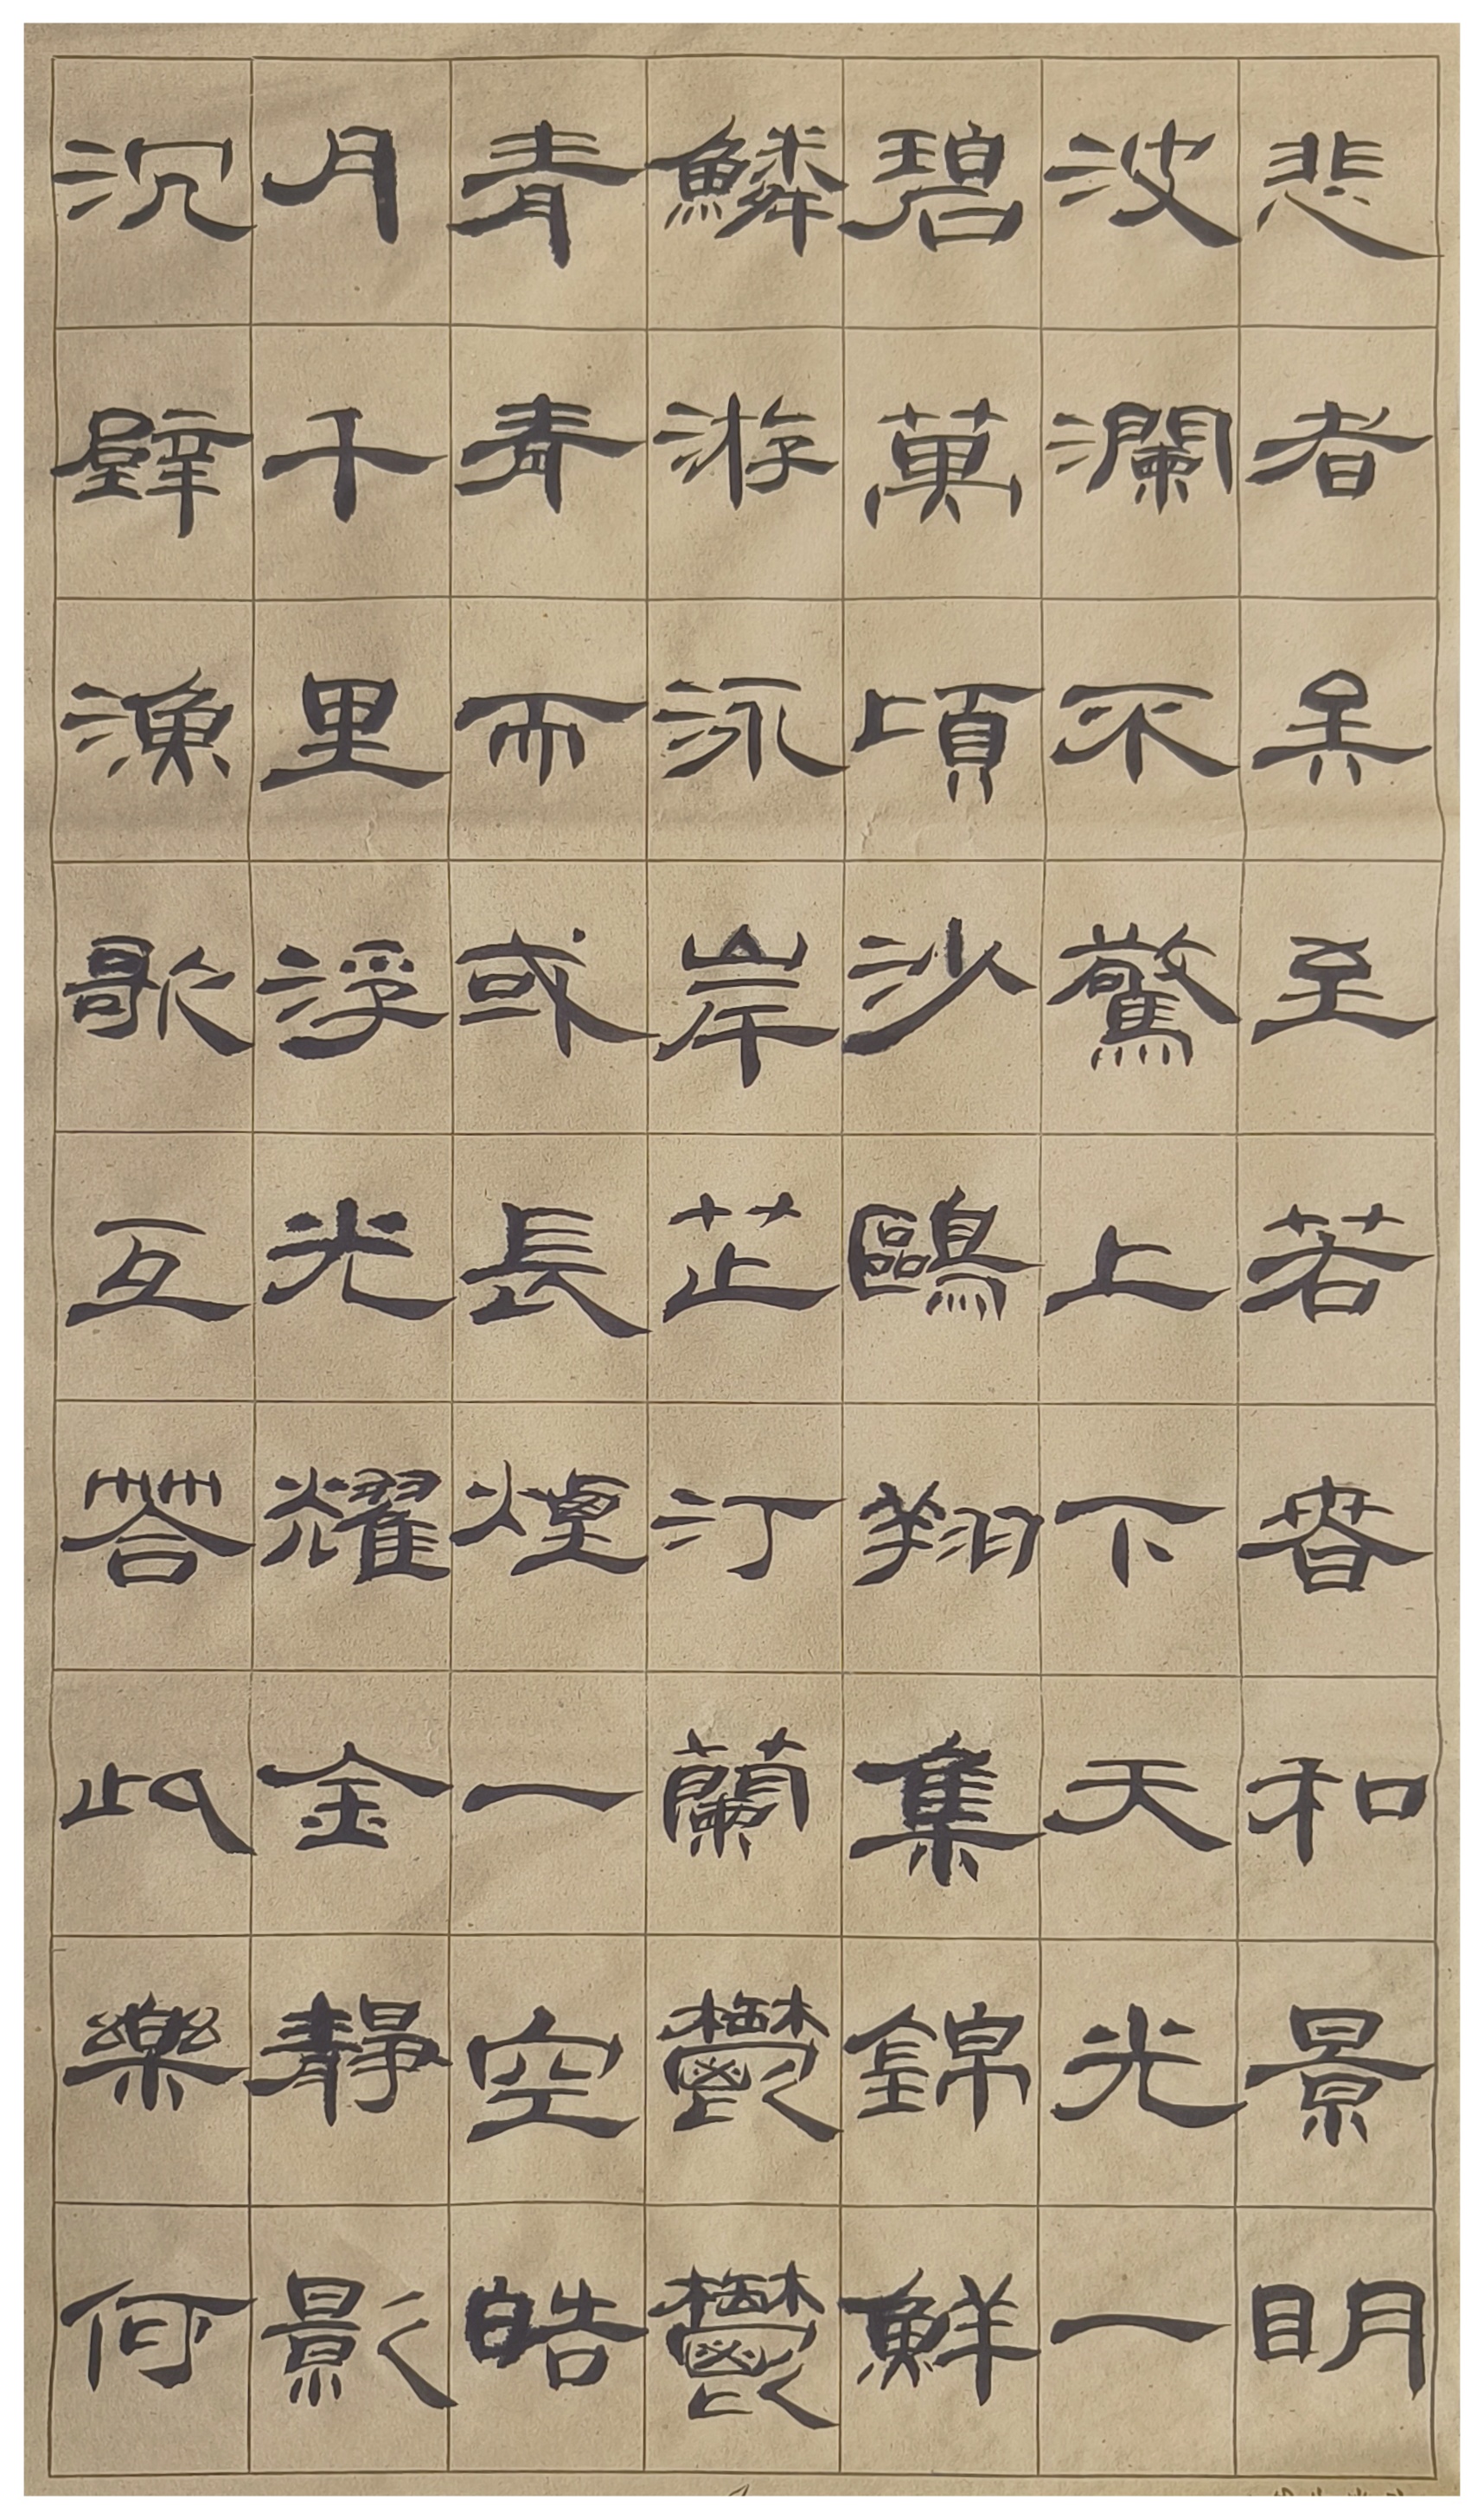 悲者矣至若春和景明
波瀾不驚上下天光一
碧萬頃沙鷗翔集錦鮮
鱗游泳岸芷汀蘭鬱鬱
青青而或長煙一空皓
月千里浮光耀金靜影
沉璧漁歌互答此樂何